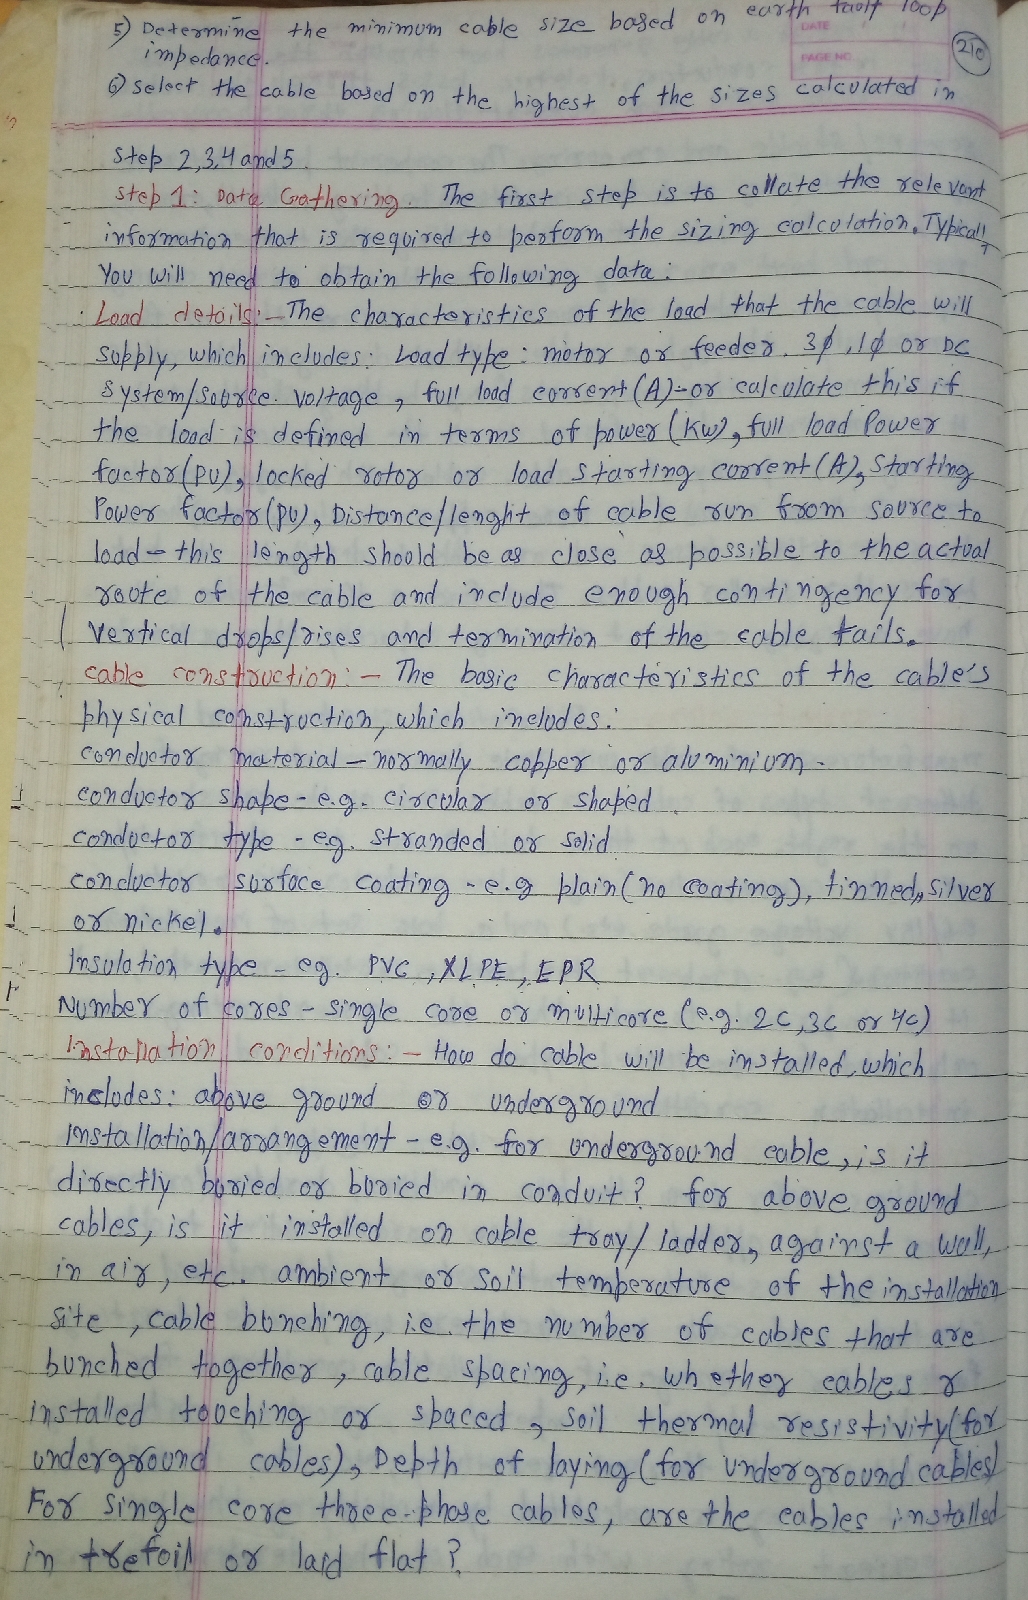 5) Determine the minimum cable size based on earth fault loop
DATE
impedance.
PAGE NO
210
6) select the cable based on the highest of the sizes calculated in
step 2,3,4 and 5.
step 1: Data Gathering. The first step is to collate the relevant
information that is required to perform the sizing calculation. Typically
You will need to obtain the following data:
Load details:- The characteristics of the load that the cable will
supply, which includes: Load type: motor or feeder. 3ϕ, 1ϕ or DC
System/source. voltage, full load current (A)-or calculate this if
the load is defined in terms of power (kw), full load Power
factor (pu), locked rotor or load starting current (A), Starting
Power factor (pu), Distance/lenght of cable run from source to
load - this length should be as close as possible to the actual
route of the cable and include enough contingency for
vertical drops/rises and termination of the cable tails.
cable construction:- The basic characteristics of the cable's
physical construction, which includes:
conductor material - normally copper or aluminium.
conductor shape - e.g. circular or shaped.
conductor type - eg. stranded or solid
conductor surface coating - e.g plain (no coating), tinned, silver
or nickel.
Insulation type - eg. PVC, XLPE, EPR
Number of cores - single core or multicore (e.g. 2C, 3C or 4C)
Installation conditions:- How do cable will be installed, which
includes: above ground or underground
installation/arrangement - e.g. for underground cable, is it
directly buried or buried in conduit? for above ground
cables, is it installed on cable tray/ladder, against a wall,
in air, etc. ambient or soil temperature of the installation
site, cable bunching, i.e. the number of cables that are
bunched together, cable spacing, i.e. whether cables r
installed touching or spaced, soil thermal resistivity (for
underground cables), Depth of laying (for underground cables)
For single core three-phase cables, are the cables installed
in trefoil or laid flat?